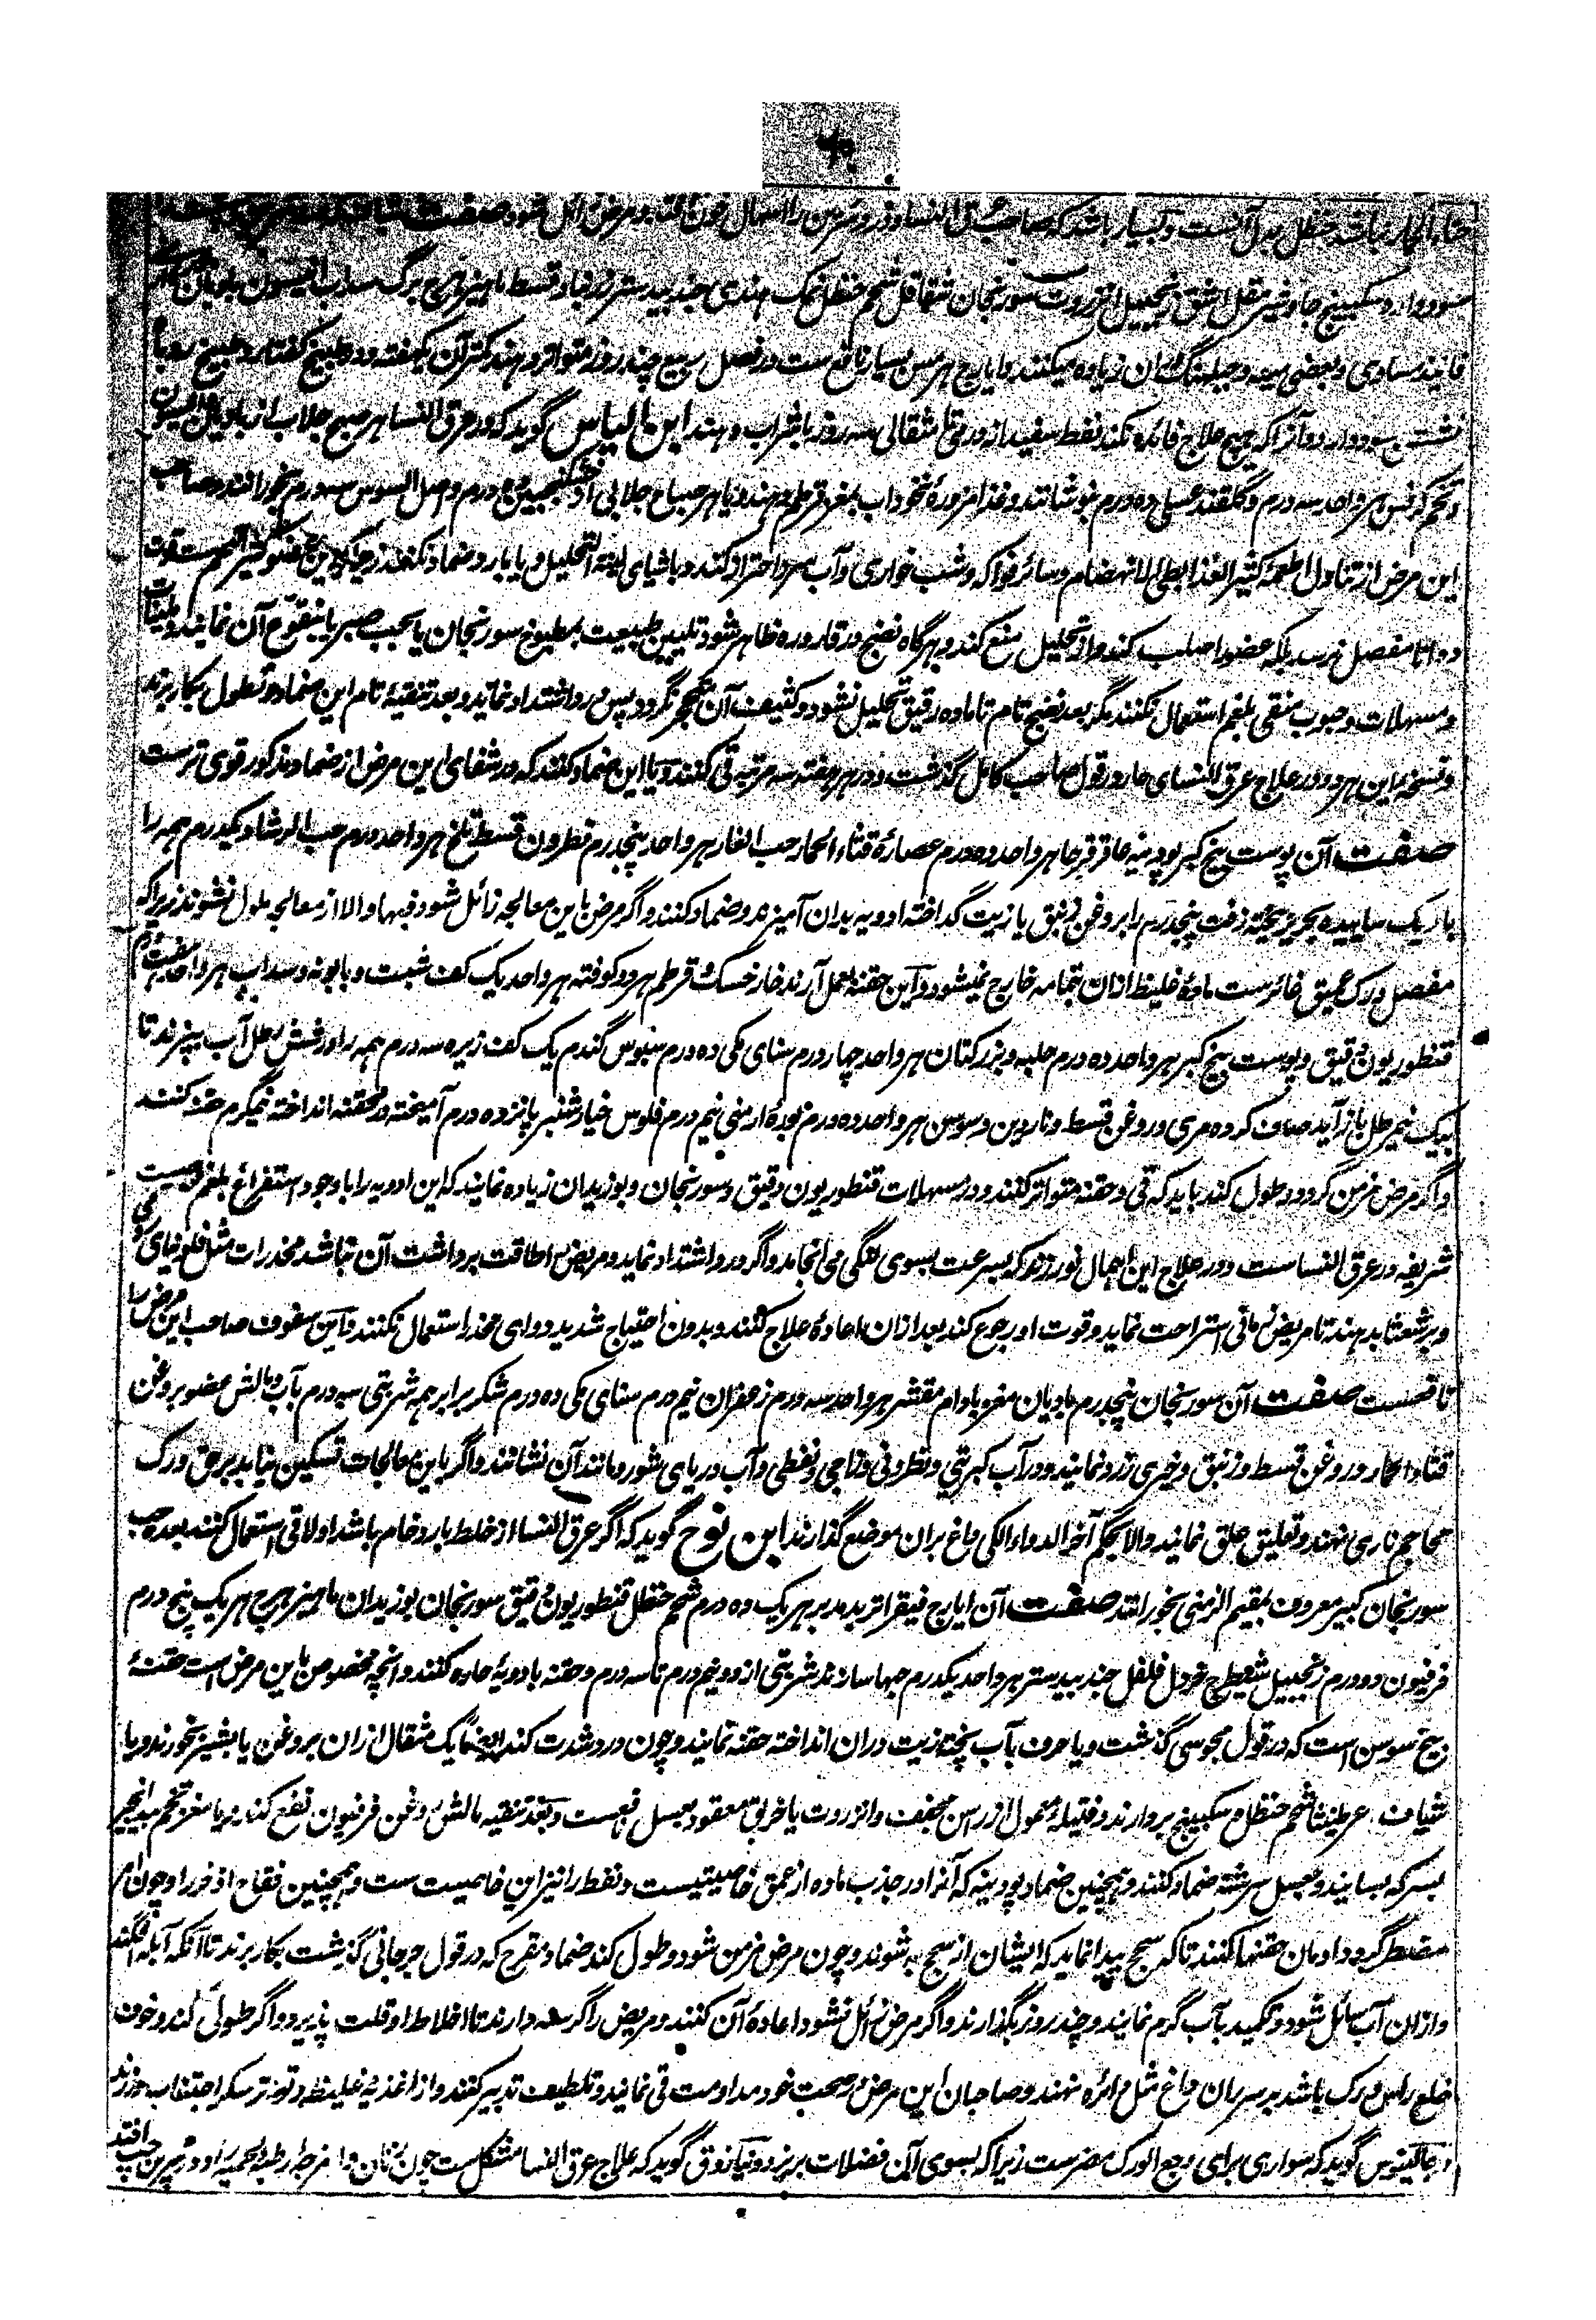 قثاء الحمار نباشد حنظل بدل آنست و بسیار باشد که صاحب عرق النسا و درد سرین را اسهال خون افتد و مرض زائل شود صفت
سود دارد سکبینج جاوشیر مقل اشق زنجبیل انزروت سورنجان شقاقل شحم حنظل نمک هندی جندبیدستر زرنباد قسط ماهیزهرج برگ سداب انیسون
فانیذ مساوی و بعضی میعه و حبلهنگ دران زیاده میکنند و ایارج هرمس بسیار نافع ست در فصل ربیع چند روز متواتر دهند کمتر آن یک هفته و در طبیخ کفتار و طبیخ روباه
نشستن سود دارد و آنرا که هیچ علاج فائده نکند نفط سفید از درمی تا مثقالی سه روز با شراب دهند ابن الیاس گوید که در عرق النسا هر صبح جلاب از بادیان انیسون
و تخم کرفس هر واحد سه درم و گلقند عسلی ده درم بنوشانند و غذا مزوره نخوداب بمغز قرطم دهند و یا هر صباح جلابی از سکنجبین ده درم و اصل السوس سه درم بخورانند و صاحب
این مرض از تناول اطعمه کثیر الغذا بطی الانهضام و سائر فواکه و شب خواری و آب سرد احتراز کند و باشیای لطیفة التحلیل و یا بارد ضماد نکنند زیرا که این عضو کثیر اللحم ست قوت
دوا تا مفصل نرسد بلکه عضو را صلب کند و از تحلیل منع کند و هرگاه نضج در قاروره ظاهر شود تلیین طبیعت بمطبوخ سورنجان یا بحب صبر یا بنقوع آن نمایند و ملینات
و مسهلات و حبوب منقی بلغم استعمال نکنند مگر بعد نضج تام تا ماده رقیق تحلیل نشود و کثیف آن متحجر نگردد پس درد اشتداد نماید و بعد تنقیه تام این ضماد و نطول بکار برند
و نسخه این هر دو در علاج عرق النسای حار در قول صاحب کامل گذشت و در هر هفته سه مرتبه قی کنند و یا این ضماد کنند که در شفای این مرض از ضماد مذکور قوی ترست
صفت آن پوست بیخ کبر پودینه عاقرقرحا هر واحد ده درم عصاره قثاء الحمار حب الغار هر واحد پنجدرم نطرون قسط تلخ هر واحد درم حب الرشاد یکدرم همه را
باریک سائیده بحریر بیخته زفت پنجدرم را بروغن زنبق یا زیت گداخته ادویه بدان آمیزند و ضماد کنند و اگر مرض باین معالجه زائل شود فبها والا از معالجه ملول نشوند زیرا که
مفصل ورک عمیق غائرست ماده غلیظ ازان بتمامه خارج نمیشود و این حقنه بعمل آرند خار خسک قرطم هر دو کوفته هر واحد یک کف شبت و بابونه و سداب هر واحد هفت درم
قنطوریون دقیق و پوست بیخ کبر هر واحد ده درم حلبه و بزر کتان هر واحد چهار درم سنای مکی ده درم سبوس گندم یک کف زیره سه درم همه را در شش رطل آب بپزند تا
بیک نیم رطل باز آید صاف کرده مری و روغن قسط و ناردین و سوسن هر واحد ده درم بوره ارمنی نیم درم فلوس خیارشنبر پانزده درم آمیخته در محقنه انداخته نیمگرم حقنه کنند
و اگر مرض مزمن گردد و طول کند باید که قی و حقنه متواتر کنند و در مسهلات قنطوریون دقیق و سورنجان و بوزیدان زیاده نمایند که این ادویه را با وجود استفراغ بلغم خاصیت
شریفه در عرق النساست و در علاج این اهمال نورزند که بسرعت بسوی لنگی می انجامد و اگر درد اشتداد نماید و مریض را طاقت برداشت آن نباشد مخدرات مثل فلونیای رومی
و برشعثا بدهند تا مریض زمانی استراحت نماید و قوت او رجوع کند بعد ازان اعاده علاج کنند و بدون احتیاج شدید دوای مخدر استعمال نکنند و این سفوف صاحب این مرض را
نافعست صفت آن سورنجان پنجدرم بادیان مغز بادام مقشر هر واحد سه درم زعفران نیم درم سنای مکی ده درم شکر برابر همه شربتی سه درم بآب و مالش عضو بروغن
قثاء الحمار و روغن قسط و زنبق و خیری زرد نمایند و در آب کبریتی و نطرونی و زاجی و نفطی و آب دریای شور و مانند آن نشانند و اگر باین معالجات تسکین نیابد بر حق ورک
محاجم ناری نهند و تعلیق علق نمایند والا بحکم آخر الدواء الکی داغ بران موضع گذارند ابن نوح گوید که اگر عرق النسا از خلط بارد خام باشد اولا قی استعمال کنند بعده حب
سورنجان کبیر معروف بمقیم الزمنی بخورانند صفت آن ایارج فیقرا تربد مدبر هر یک ده درم شحم حنظل قنطوریون دقیق سورنجان بوزیدان ماهیزهرج هر یک پنج درم
فرفیون دو درم زنجبیل شیطرج خردل فلفل جندبیدستر هر واحد یکدرم حبها سازند شربتی از دو نیم درم تا سه درم و حقنه بادویه حاده کنند و آنچه مخصوص باین مرض است حقنه
بیخ سوسن است که در قول مجوسی گذشت و یا حرف بآب پخته زیت دران انداخته حقنه نمایند و چون درد شدت کند ایضا یک مثقال ازان بروغن یا بشیر بخورند و یا
شیاف عرطنیثا شحم حنظل و سکبینج بردارند و فتیله معمول از راسن مجفف و انزروت یا خربق معقود بعسل نافعست و بعد تنقیه مالش روغن فرفیون نفع کند و یا مغز تخم بیدانجیر
بسرکه بسایند و بعسل سرشته ضماد کنند و همچنین ضماد پودینه که آنرا در جذب ماده از عمق خاصیتیست و نفط را نیز این خاصیت ست و همچنین فقاح اذخر را و چون امر
مضطر گردد ادمان حقنها کنند تا که سحج پیدا نماید که ایشان از سحج به شوند و چون مرض مزمن شود و طول کند ضماد مقرح که در قول جرجانی گذشت بکار برند تا آنکه آبله افگند
و ازان آب سائل شود و تکمید بآب گرم نمایند و چند روز بگذارند و اگر مرض زائل نشود اعاده آن کنند و مریض را گرسنه دارند تا اخلاط او قلت پذیرد و اگر طولی کند و خوف
خلع راس ورک باشد بر سر ران داغ مثل دائره نهند و صاحبان این مرض در صحت خود مداومت قی نمایند و تلطیف تدبیر کنند و از اغذیه غلیظه و تواتر سکر اجتناب ورزند
و جالینوس گوید که سواری برای وجع الورک مضرست زیرا که بسوی آن فضلات بریزد و نیازوق گوید که علاج عرق النسا مشکل ست چون